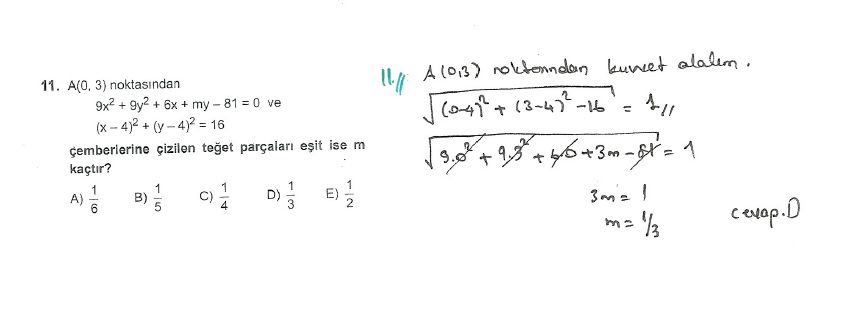 11. A(0, 3) noktasından
9x² + 9y² + 6x + my – 81 = 0 ve
(x – 4)² + (y – 4)² = 16
çemberlerine çizilen teğet parçaları eşit ise m
kaçtır?
A) 1/6 B) 1/5 C) 1/4 D) 1/3 E) 1/2
11.// A(0,3) noktasından kuvvet alalım.
√((0-4)² + (3-4)² - 16) = 1//
√(9.0² + 9.3² + 6.0 + 3m - 81) = 1
3m = 1
m = 1/3
cevap.D